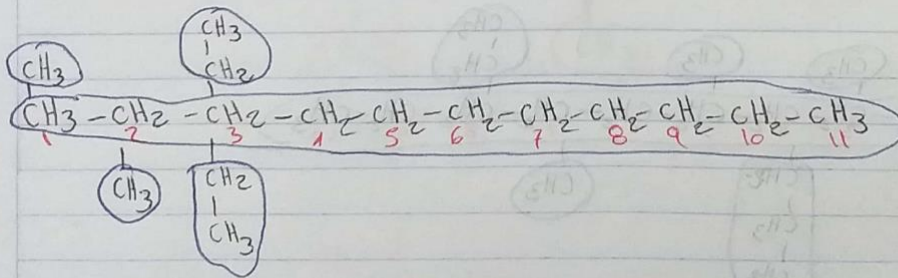 CH3
CH2
CH3
CH3 - CH2 - CH2 - CH2 - CH2 - CH2 - CH2 - CH2 - CH2 - CH2 - CH3
1 2 3 4 5 6 7 8 9 10 11
CH3
CH2
CH3